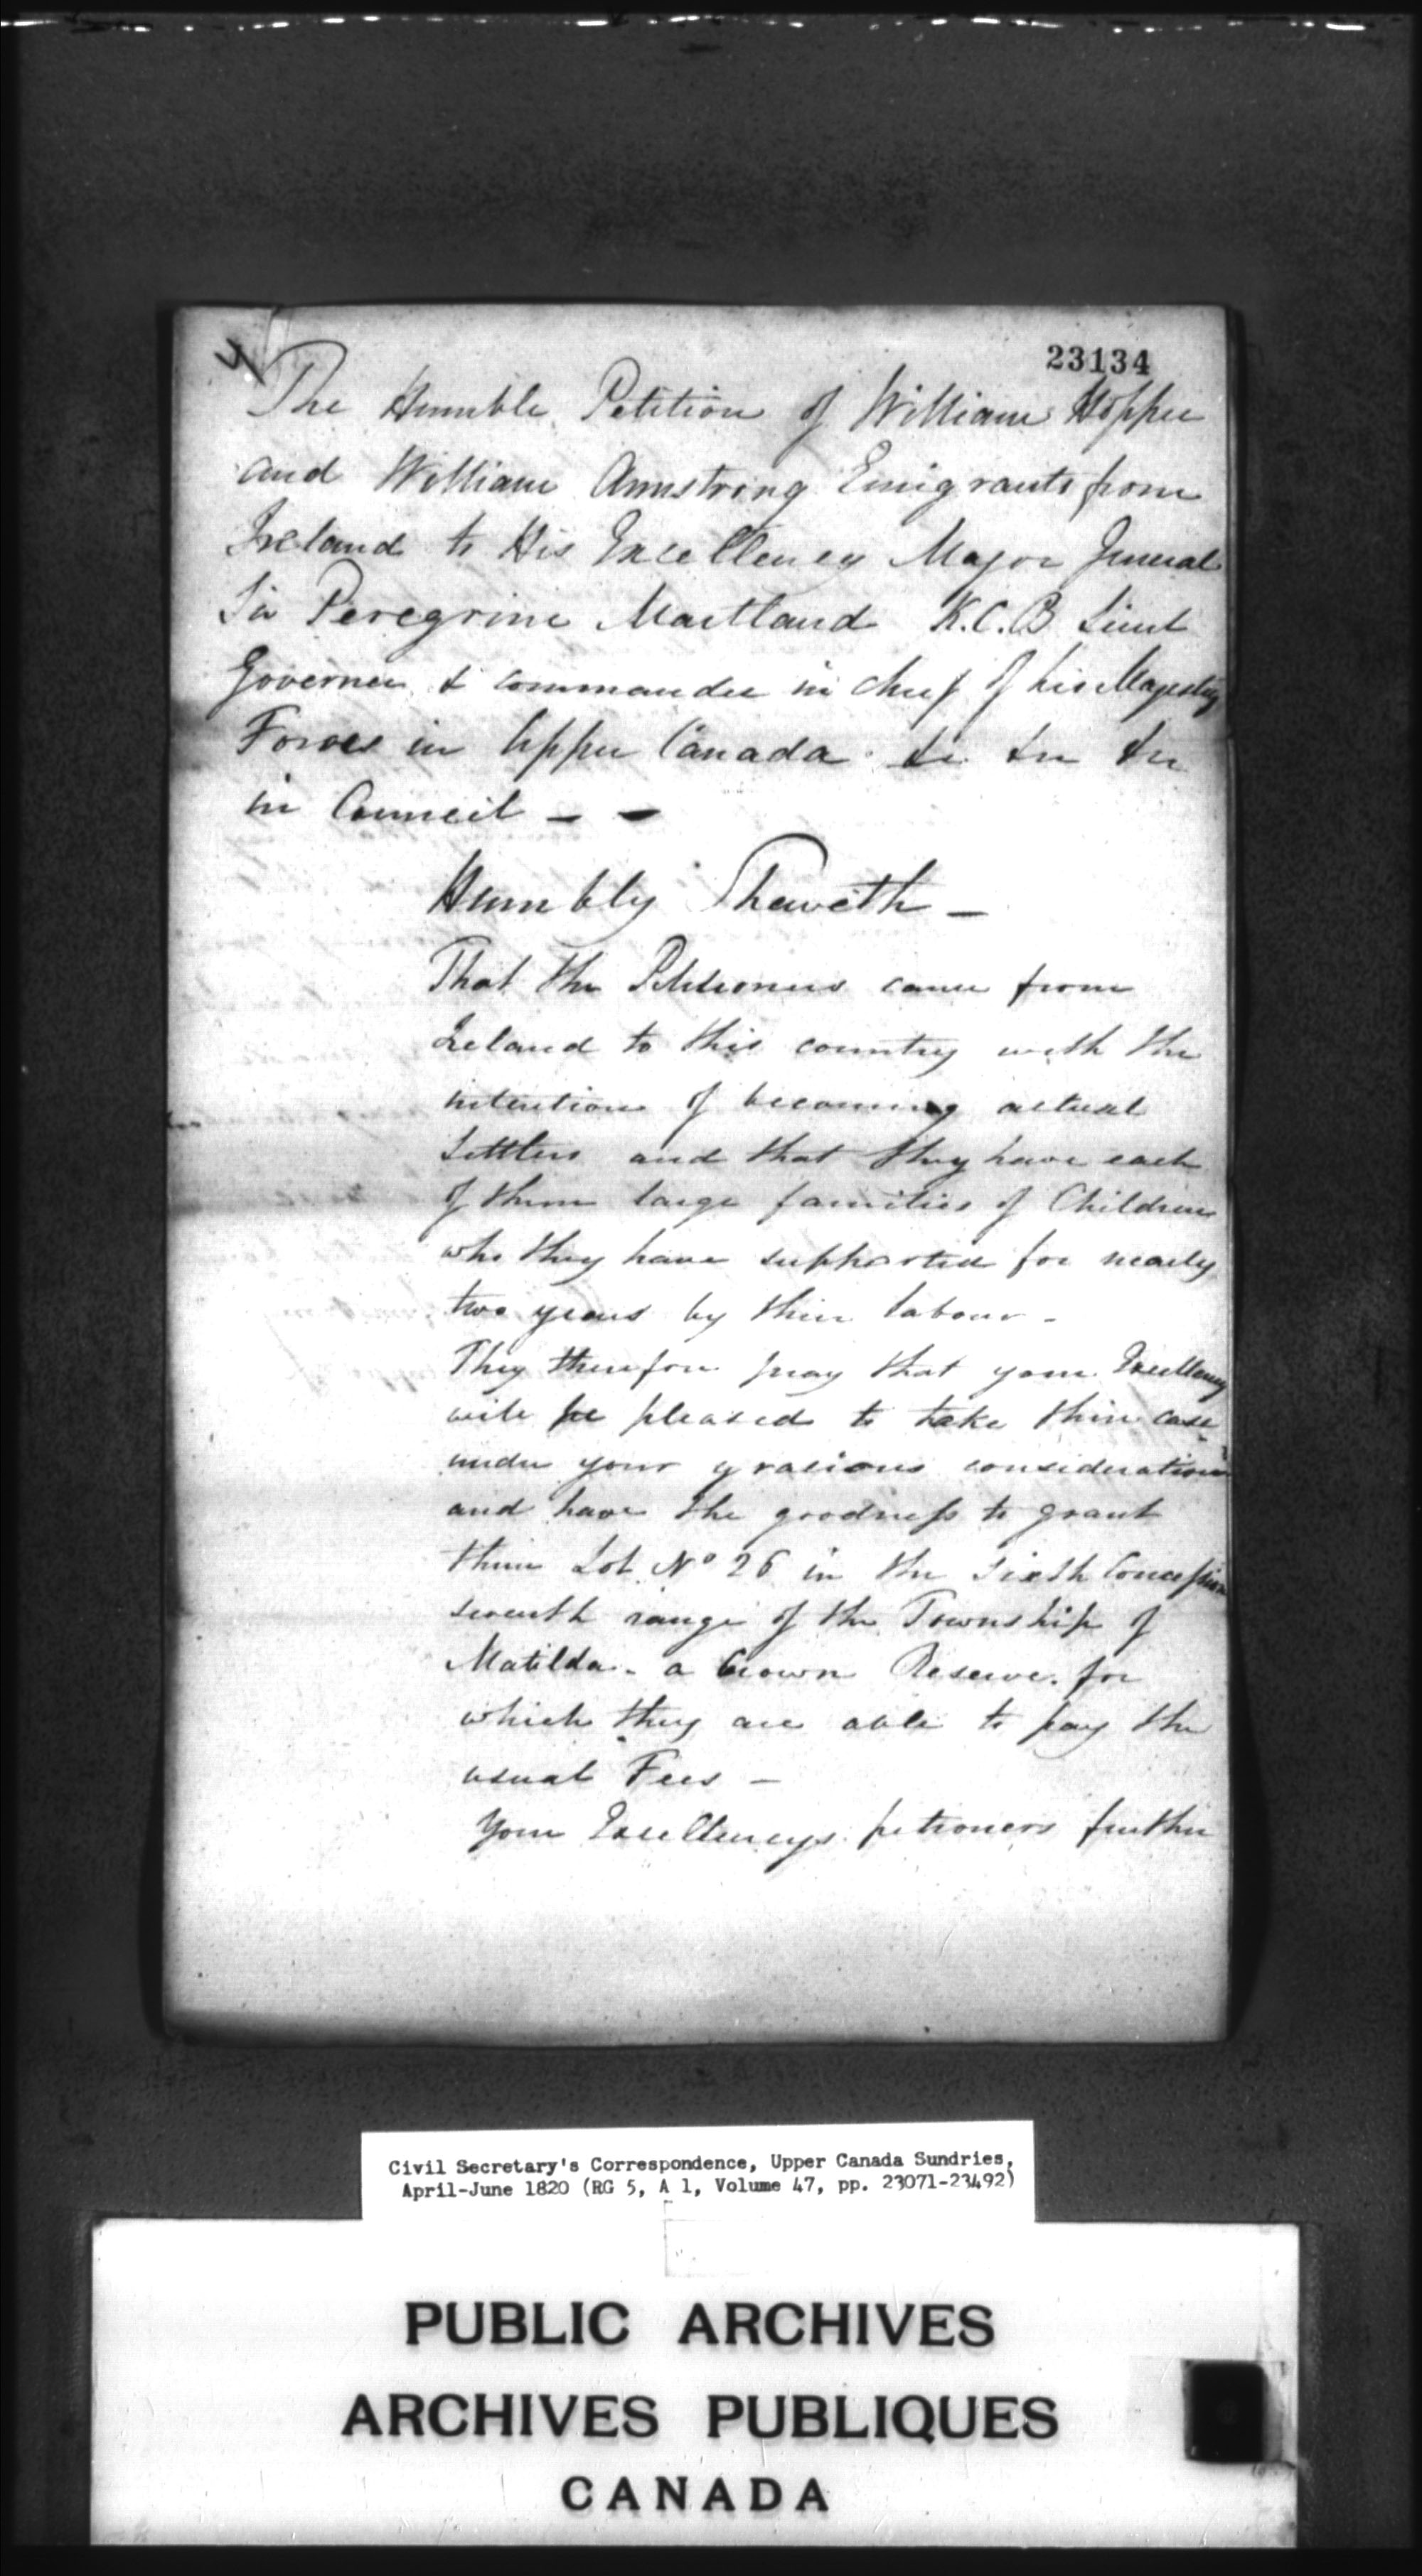 23134
The Humble Petition of William Hopper
and William Armstrong Emigrants from
Ireland to His Excellency Major General
Sir Peregrine Maitland K.C.B Lieut
Governer & commander in cheif of his Majestys
Forces in Upper Canada &c &c &c
in Council - -
Humbly Sheweth -
That the Petitioners came from
Ireland to this country with the
intention of becoming actual
Settlers and that they have each
of them large families of Children
who they have supported for nearly
two years by their labour -
They therefore pray that your Excellency
will be pleased to take their case
under your gracious consideration
and have the goodness to grant
them Lot No 26 in the sixth Concession
seventh range of the Township of
Matilda - a Crown Reserve. for
which they are able to pay the
usual Fees -
Your Excellencys petioners further
Civil Secretary's Correspondence, Upper Canada Sundries,
April-June 1820 (RG 5, A 1, Volume 47, pp. 23071-23492)
PUBLIC ARCHIVES
ARCHIVES PUBLIQUES
CANADA